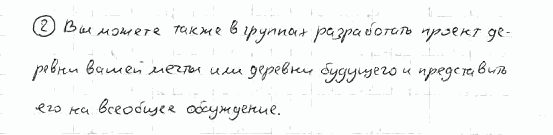 ② Вы можете также в группах разработать проект де-
ревни вашей мечты или деревни будущего и представить
его на всеобщее обсуждение.